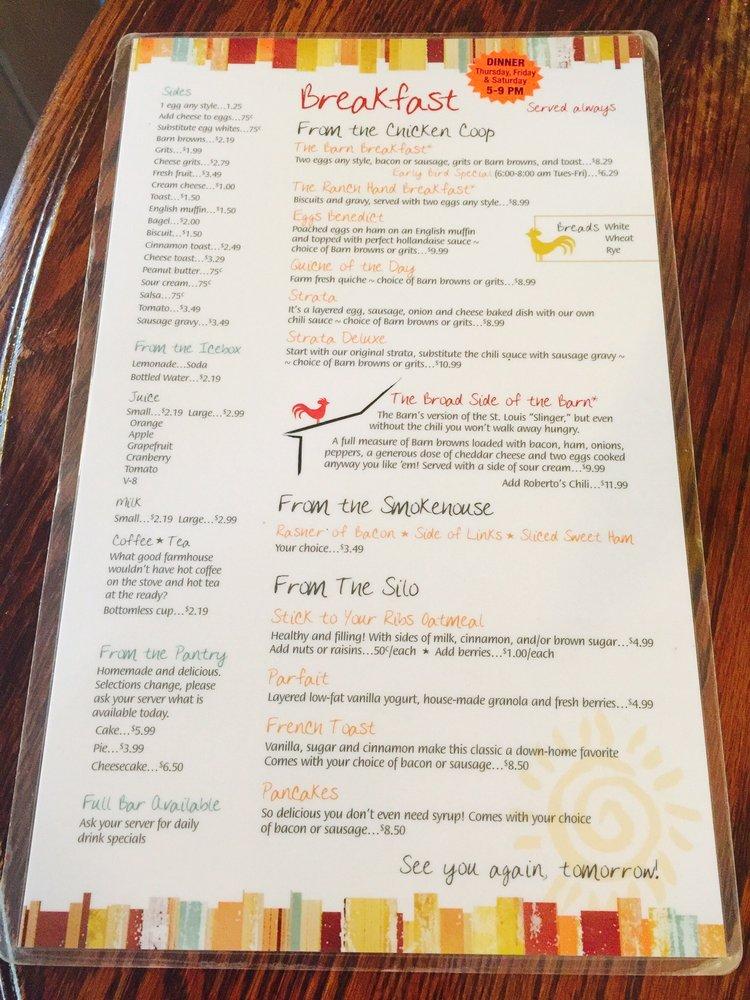 Sides
1 egg any style...1.25
Add cheese to eggs...75¢
Substitute egg whites...75¢
Barn browns...$2.19
Grits...$1.99
Cheese grits...$2.79
Fresh fruit...$3.49
Cream cheese...$1.00
Toast...$1.50
English muffin...$1.50
Bagel...$2.00
Biscuit...$1.50
Cinnamon toast...$2.49
Cheese toast...$3.29
Peanut butter...75¢
Sour cream...75¢
Salsa...75¢
Tomato...$3.49
Sausage gravy...$3.49
From the Icebox
Lemonade...Soda
Bottled Water...$2.19
Juice
Small...$2.19 Large...$2.99
Orange
Apple
Grapefruit
Cranberry
Tomato
V-8
Milk
Small...$2.19 Large...$2.99
Coffee ★ Tea
What good farmhouse
wouldn't have hot coffee
on the stove and hot tea
at the ready?
Bottomless cup...$2.19
From the Pantry
Homemade and delicious.
Selections change, please
ask your server what is
available today.
Cake...$5.99
Pie...$3.99
Cheesecake...$6.50
Full Bar Available
Ask your server for daily
drink specials
DINNER
Thursday, Friday
& Saturday
5-9 PM
Breakfast
Served always
From the Chicken Coop
The Barn Breakfast*
Two eggs any style, bacon or sausage, grits or Barn browns, and toast...$8.29
Early Bird Special (6:00-8:00 am Tues-Fri)...$6.29
The Ranch Hand Breakfast*
Biscuits and gravy, served with two eggs any style...$8.99
Eggs Benedict
Poached eggs on ham on an English muffin
and topped with perfect hollandaise sauce ~
choice of Barn browns or grits...$9.99
Breads White
Wheat
Rye
Quiche of the Day
Farm fresh quiche ~ choice of Barn browns or grits...$8.99
Strata
It's a layered egg, sausage, onion and cheese baked dish with our own
chili sauce ~ choice of Barn browns or grits...$8.99
Strata Deluxe
Start with our original strata, substitute the chili sauce with sausage gravy ~
~ choice of Barn browns or grits...$10.99
The Broad Side of the Barn*
The Barn's version of the St. Louis "Slinger," but even
without the chili you won't walk away hungry.
A full measure of Barn browns loaded with bacon, ham, onions,
peppers, a generous dose of cheddar cheese and two eggs cooked
anyway you like 'em! Served with a side of sour cream...$9.99
Add Roberto's Chili...$11.99
From the Smokehouse
Rasher of Bacon ★ Side of Links ★ Sliced Sweet Ham
Your choice...$3.49
From The Silo
Stick to Your Ribs Oatmeal
Healthy and filling! With sides of milk, cinnamon, and/or brown sugar...$4.99
Add nuts or raisins...50¢/each ★ Add berries...$1.00/each
Parfait
Layered low-fat vanilla yogurt, house-made granola and fresh berries...$4.99
French Toast
Vanilla, sugar and cinnamon make this classic a down-home favorite
Comes with your choice of bacon or sausage...$8.50
Pancakes
So delicious you don't even need syrup! Comes with your choice
of bacon or sausage...$8.50
See you again, tomorrow!